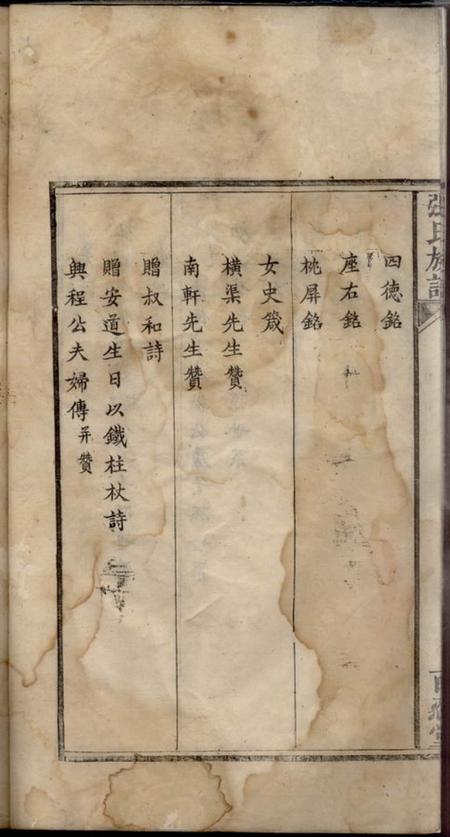 張氏族譜
四德銘
座右銘
桃屏銘
女史箴
橫渠先生贊
南軒先生贊
贈叔和詩
贈安道生日以鐵柱杖詩
興程公夫婦傳并贊
百忍堂